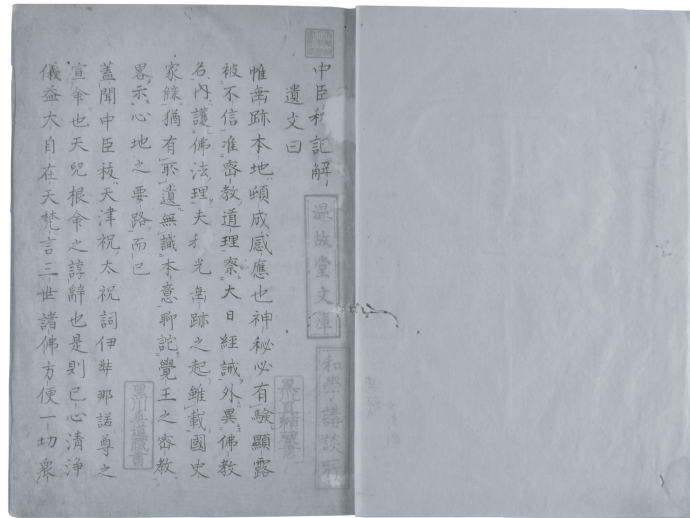 中臣祓訓解
遺文曰
惟垂跡本地頗成感應也神秘必有驗顯露
被不信准密教道理察大日經誡外異佛教
名内護佛法理夫和光垂跡之起雖載國史
家條猶有所遺無識本意聊託覺王之密教
略示心地之要路而已
蓋聞中臣祓天津祝太祝詞伊弉那諾尊之
宣命也天兒根命之諄辭也是則已心清浄
儀益大自在天梵言三世諸佛方便一切衆
温故堂文庫
和學講談所
黒川真頼蔵書
黒川真道蔵書